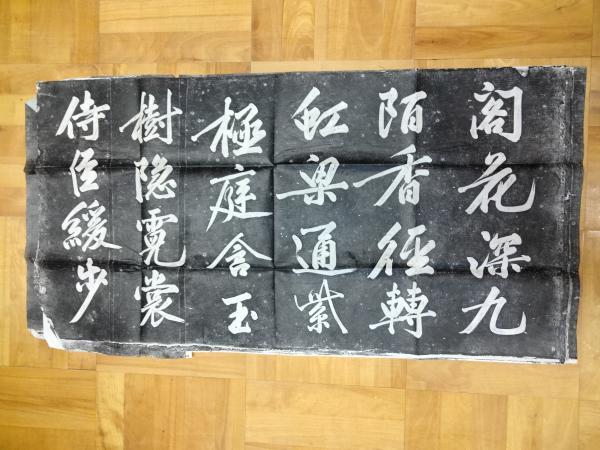 阁花深九
陌香徑轉
虹梁通紫
極庭含玉
樹隐霓裳
侍臣緩步